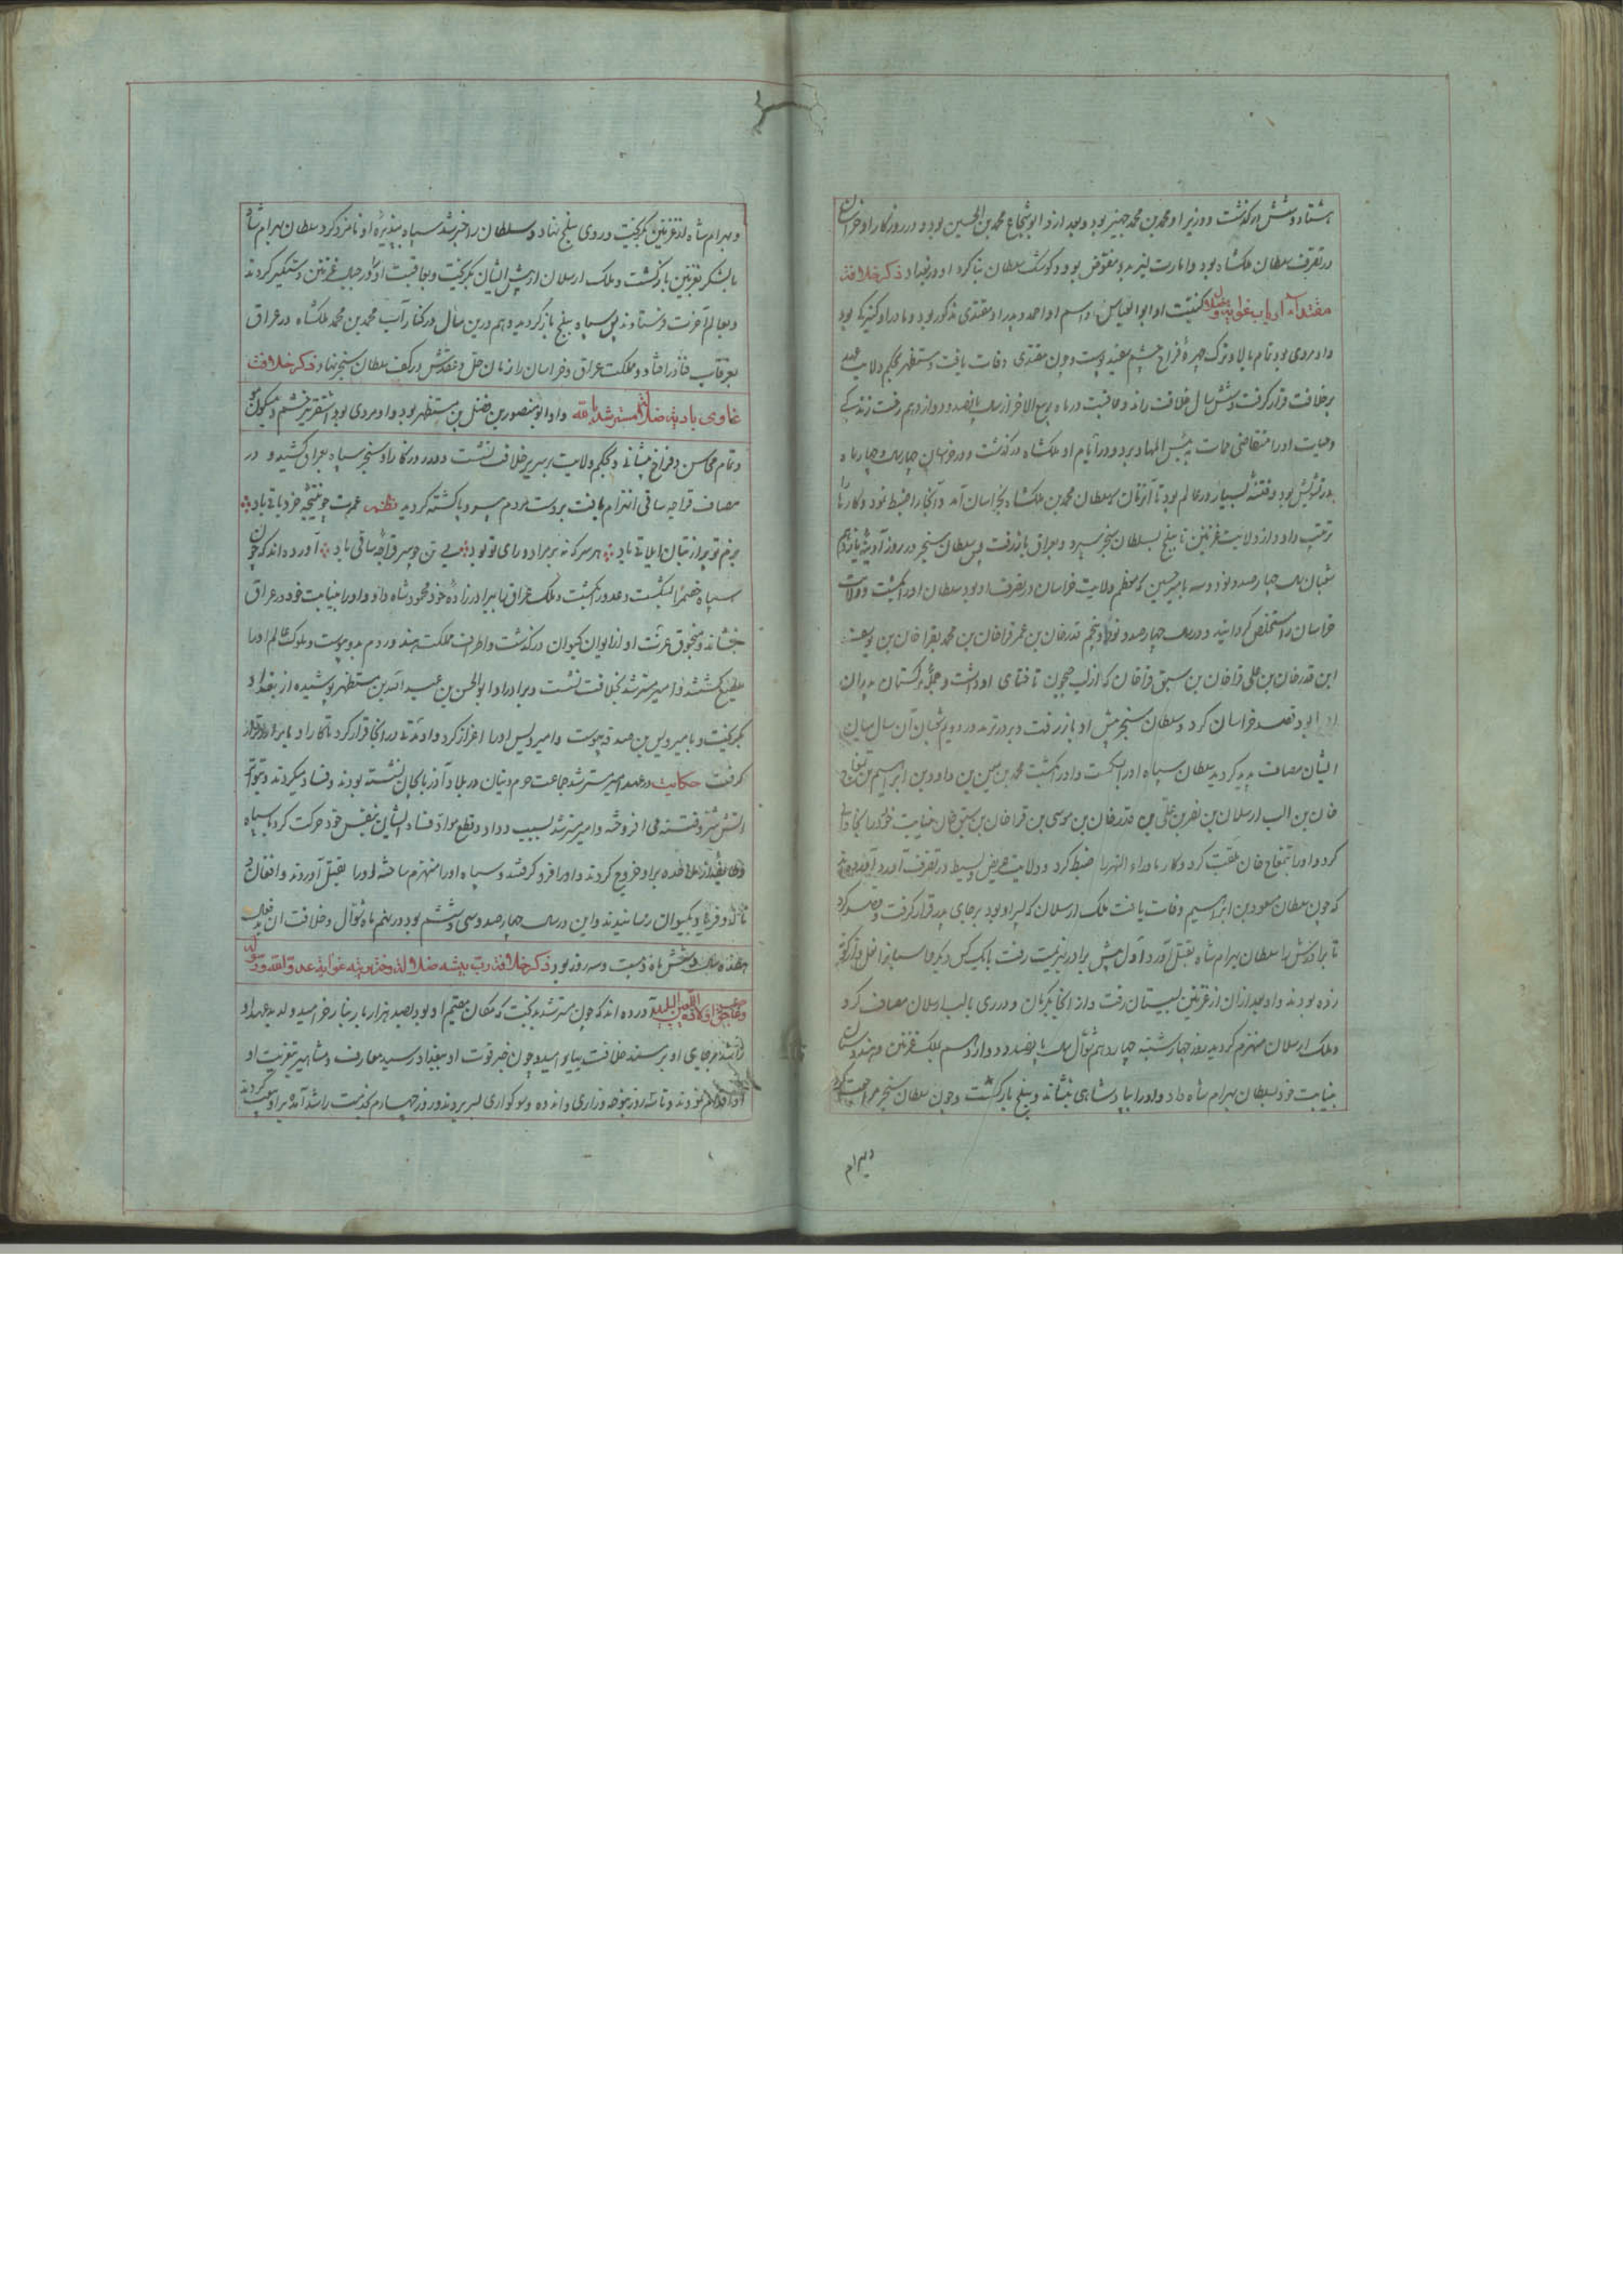 هشتاد و شش درگذشت و وزیر او محمد بن محمد جهیر بود و بعد ازو ابو شجاع محمد بن الحسین بود و در روزگار او خراسان
در تصرف سلطان ملکشاه بود و امارت نیز بدو مفوض بود و کوشک سلطان بنا کرد او در بغداد ذکر خلافت
کنیت او ابو العباس و اسم او احمد و پدر او مقتدی مذکور بود و مادر او کنیزکی بود
و او مردی بود تمام بالا و ترک چهرهٔ فراخ چشم سفید پوست و چون مقتدی وفات یافت مستظهر بحکم ولایت عهد
بر خلافت قرار گرفت و شش سال خلافت راند و عاقبت در ماه ربیع الاخر از سال پانصد و دوازدهم رفت زندگی
و حیات او را متقاضی ممات به بئس المهاد برد و در ایام او ملکشاه درگذشت و در خراسان چهار سال چهار ماه
بود تشویش بود و فتنهٔ بسیار در عالم بود تا آن زمان سلطان محمد بن ملکشاه بخراسان آمد و آنجا را ضبط نمود و کار را
ترتیب داد و از ولایت غزنین تا بلخ بسلطان سنجر سپرد و بعراق باز رفت پس سلطان سنجر در روز آدینه پانزدهم
شعبان سال چهارصد و نود و سه با امیر حسین که معظم ولایت خراسان در تصرف او بود سلطان او را بکشت و ولایت
خراسان را مستخلص گردانید و در سال چهارصد و نود و پنجم قدر خان بن عمر قراخان بن محمد بقراخان بن یوسف
ابن قدر خان بن علی قراخان بن ستق قراخان که از لب جیحون تا ختای او داشت و جمله ترکستان بدان
بود قصد خراسان کرد و سلطان سنجر پیش او باز رفت و بر در ترمد در دویم شعبان آن سال میان
ایشان مصاف پدید گردید سلطان سپاه او را بشکست و او را بکشت محمد بن حسین بن داود بن ابراهیم بن
خان بن الب ارسلان بن نصر بن علی بن قدر خان بن موسی بن قراخان بن ستق خان بنیابت خود در آنجا والی
کرد و او را تمغاج خان ملقب کرد و کار ماوراء النهر را ضبط کرد و ولایت عریض و بسیط در تصرف آورد آورده‌اند
که چون سلطان مسعود بن ابراهیم وفات یافت ملک ارسلان که پسر او بود بر جای پدر قرار گرفت و قصد کرد
تا برادرش را سلطان بهرام شاه بقتل آورد و اول پیش برادر بهزیمت رفت با یک کس و دیگر
زده بودند و او بعد از آن از غزنین بسیستان رفت و از آنجا بکرمان و در ری با الب ارسلان مصاف کرد
و ملک ارسلان منهزم گردید روز چهارشنبه چهاردهم شوال سال پانصد و دوازدهم ملک غزنین و هندوستان
بنیابت خود سلطان بهرام شاه داد و او را بپادشاهی بنشاند و ببلخ بازگشت و چون سلطان سنجر مراجعت کرد
و بهرام
و بهرام شاه از غزنین بگریخت و روی ببلخ نهاد و سلطان را خبر شد سپاه بپذیرهٔ او نامزد کرد سلطان بهرام شاه
با لشکر بغزنین بازگشت و ملک ارسلان از پیش ایشان بگریخت و بعاقبت او را در جبال غزنین دستگیر کردند
و بعالم آخرت فرستادند پس سپاه ببلخ باز گردید و هم درین سال در کنار آب محمد بن محمد ملکشاه در عراق
بغرقاب فنا در افتاد و مملکت عراق و خراسان را زمان حل و عقدش در کف سلطان سنجر نهاد ذکر خلافت
غاوی بادیه ضلالت مسترشد بالله و او ابو منصور بن فضل بن مستظهر بود و او مردی بود اشقر سبز چشم و میگون موی
و تمام محاسن و فراخ پیشانی و بحکم ولایت بر سریر خلافت نشست و در روزگار او سنجر سپاه بعراق کشید و در
مصاف قراجه ساقی انهزام یافت بر دست مردم سپر و پا کشته گردید نظم عمرت چو نتیجه خرد باقی باد
بزم تو پر از بتان ایلاقی باد هر سر که نه بر مراد و رای تو بود بی تن چو سر قراجه ساقی باد آورده‌اند که چون
سپاه خصم را بشکست و عدو را بکشت و ملک عراق با برادر زادهٔ خود محمود شاه داد و او را بنیابت خود در عراق
بنشاند و منجوق عزت او از ایوان کیوان درگذشت و اطراف مملکت هند و روم بدو پیوست و ملوک عالم او را
مطیع گشتند و امیر مسترشد بخلافت نشست و برادر او ابو الحسن بن عبد الله بن مستظهر پوشیده از بغداد
بگریخت و با میر دبیس بن صدقه پیوست و امیر دبیس او را اعزاز کرد و او مدتی در آنجا قرار کرد تا کار او با برادر قرار
گرفت حکایت در عهد امیر مسترشد جماعت خرم دینان در بلاد آذربایجان نشسته بودند و فساد میکردند
آتش شر و فتنه می افروختند و امیر مسترشد بسبب و داد و قطع مواد فساد ایشان بنفس خود حرکت کرد با سپاه
و طایفه از ملاحده بر او خروج کردند و او را فرو گرفتند و سپاه او را منهزم ساخته او را بقتل آوردند و افغان
ناله و فریاد بکیوان رسانیدند و این در سال چهارصد و سی و ششم بود در نهم ماه شوال و خلافت آن
هفده سال و شش ماه و بیست و سه روز بود ذکر خلافت
آورده‌اند که چون مسترشد بدبخت که مکان مقیم او بود بصد هزار بار بنار خرامید و لد بدعهد او
راشد بر جای او بر مسند خلافت بیارامید و چون خبر فوت او ببغداد رسید معارف و مشاهیر بتعزیت او
نمودند و تا سه روز بنوحه و زاری و اندوه و سوکواری بسر بردند و روز چهارم بخدمت راشد آمده بر او بیعت کردند